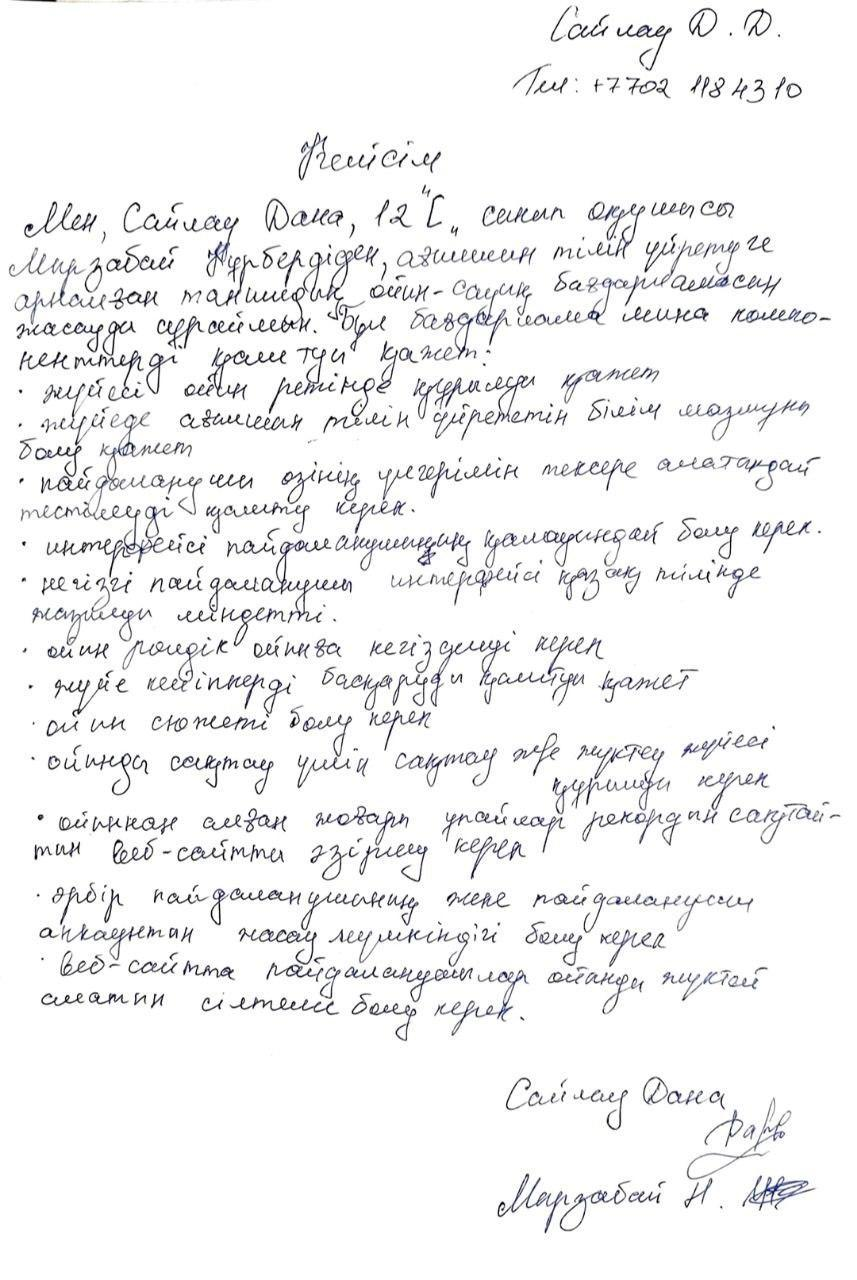 Сайлау Д. Д.
Тел: +7702 1184310
Келісім
Мен, Сайлау Дана, 12 "С" сынып оқушысы
Мырзабай Нұрбердіден, ағылшын тілін үйретуге
арналған танымдық ойын-сауық бағдарламасын
жасауды сұраймын. Бұл бағдарлама мына компо-
ненттерді қамтуы қажет:
· жүйесі ойын ретінде құрылуы қажет
· жүйеде ағылшын тілін үйрететін білім мазмұны
болу қажет
· пайдаланушы өзінің үлгерімін тексере алатындай
тестілеуді қамту керек.
· интерфейсі пайдаланушының қалауындай болу керек.
· негізгі пайдаланушы интерфейсі қазақ тілінде
жазылуы міндетті.
· ойын рөлдік ойынға негізделуі керек
· жүйе кейіпкерді басқаруды қамтуы қажет
· ойын сюжеті болу керек
· ойынды сақтау үшін сақтау және жүктеу жүйесі
құрылуы керек
· ойыннан алған жоғары ұпайлар рекордын сақтай-
тын веб-сайтты әзірлеу керек
· әрбір пайдаланушының жеке пайдаланушы
аккаунтын жасау мүмкіндігі болу керек
· веб-сайтта пайдаланушылар ойынды жүктей
алатын сілтеме болу керек.
Сайлау Дана
Мырзабай Н.